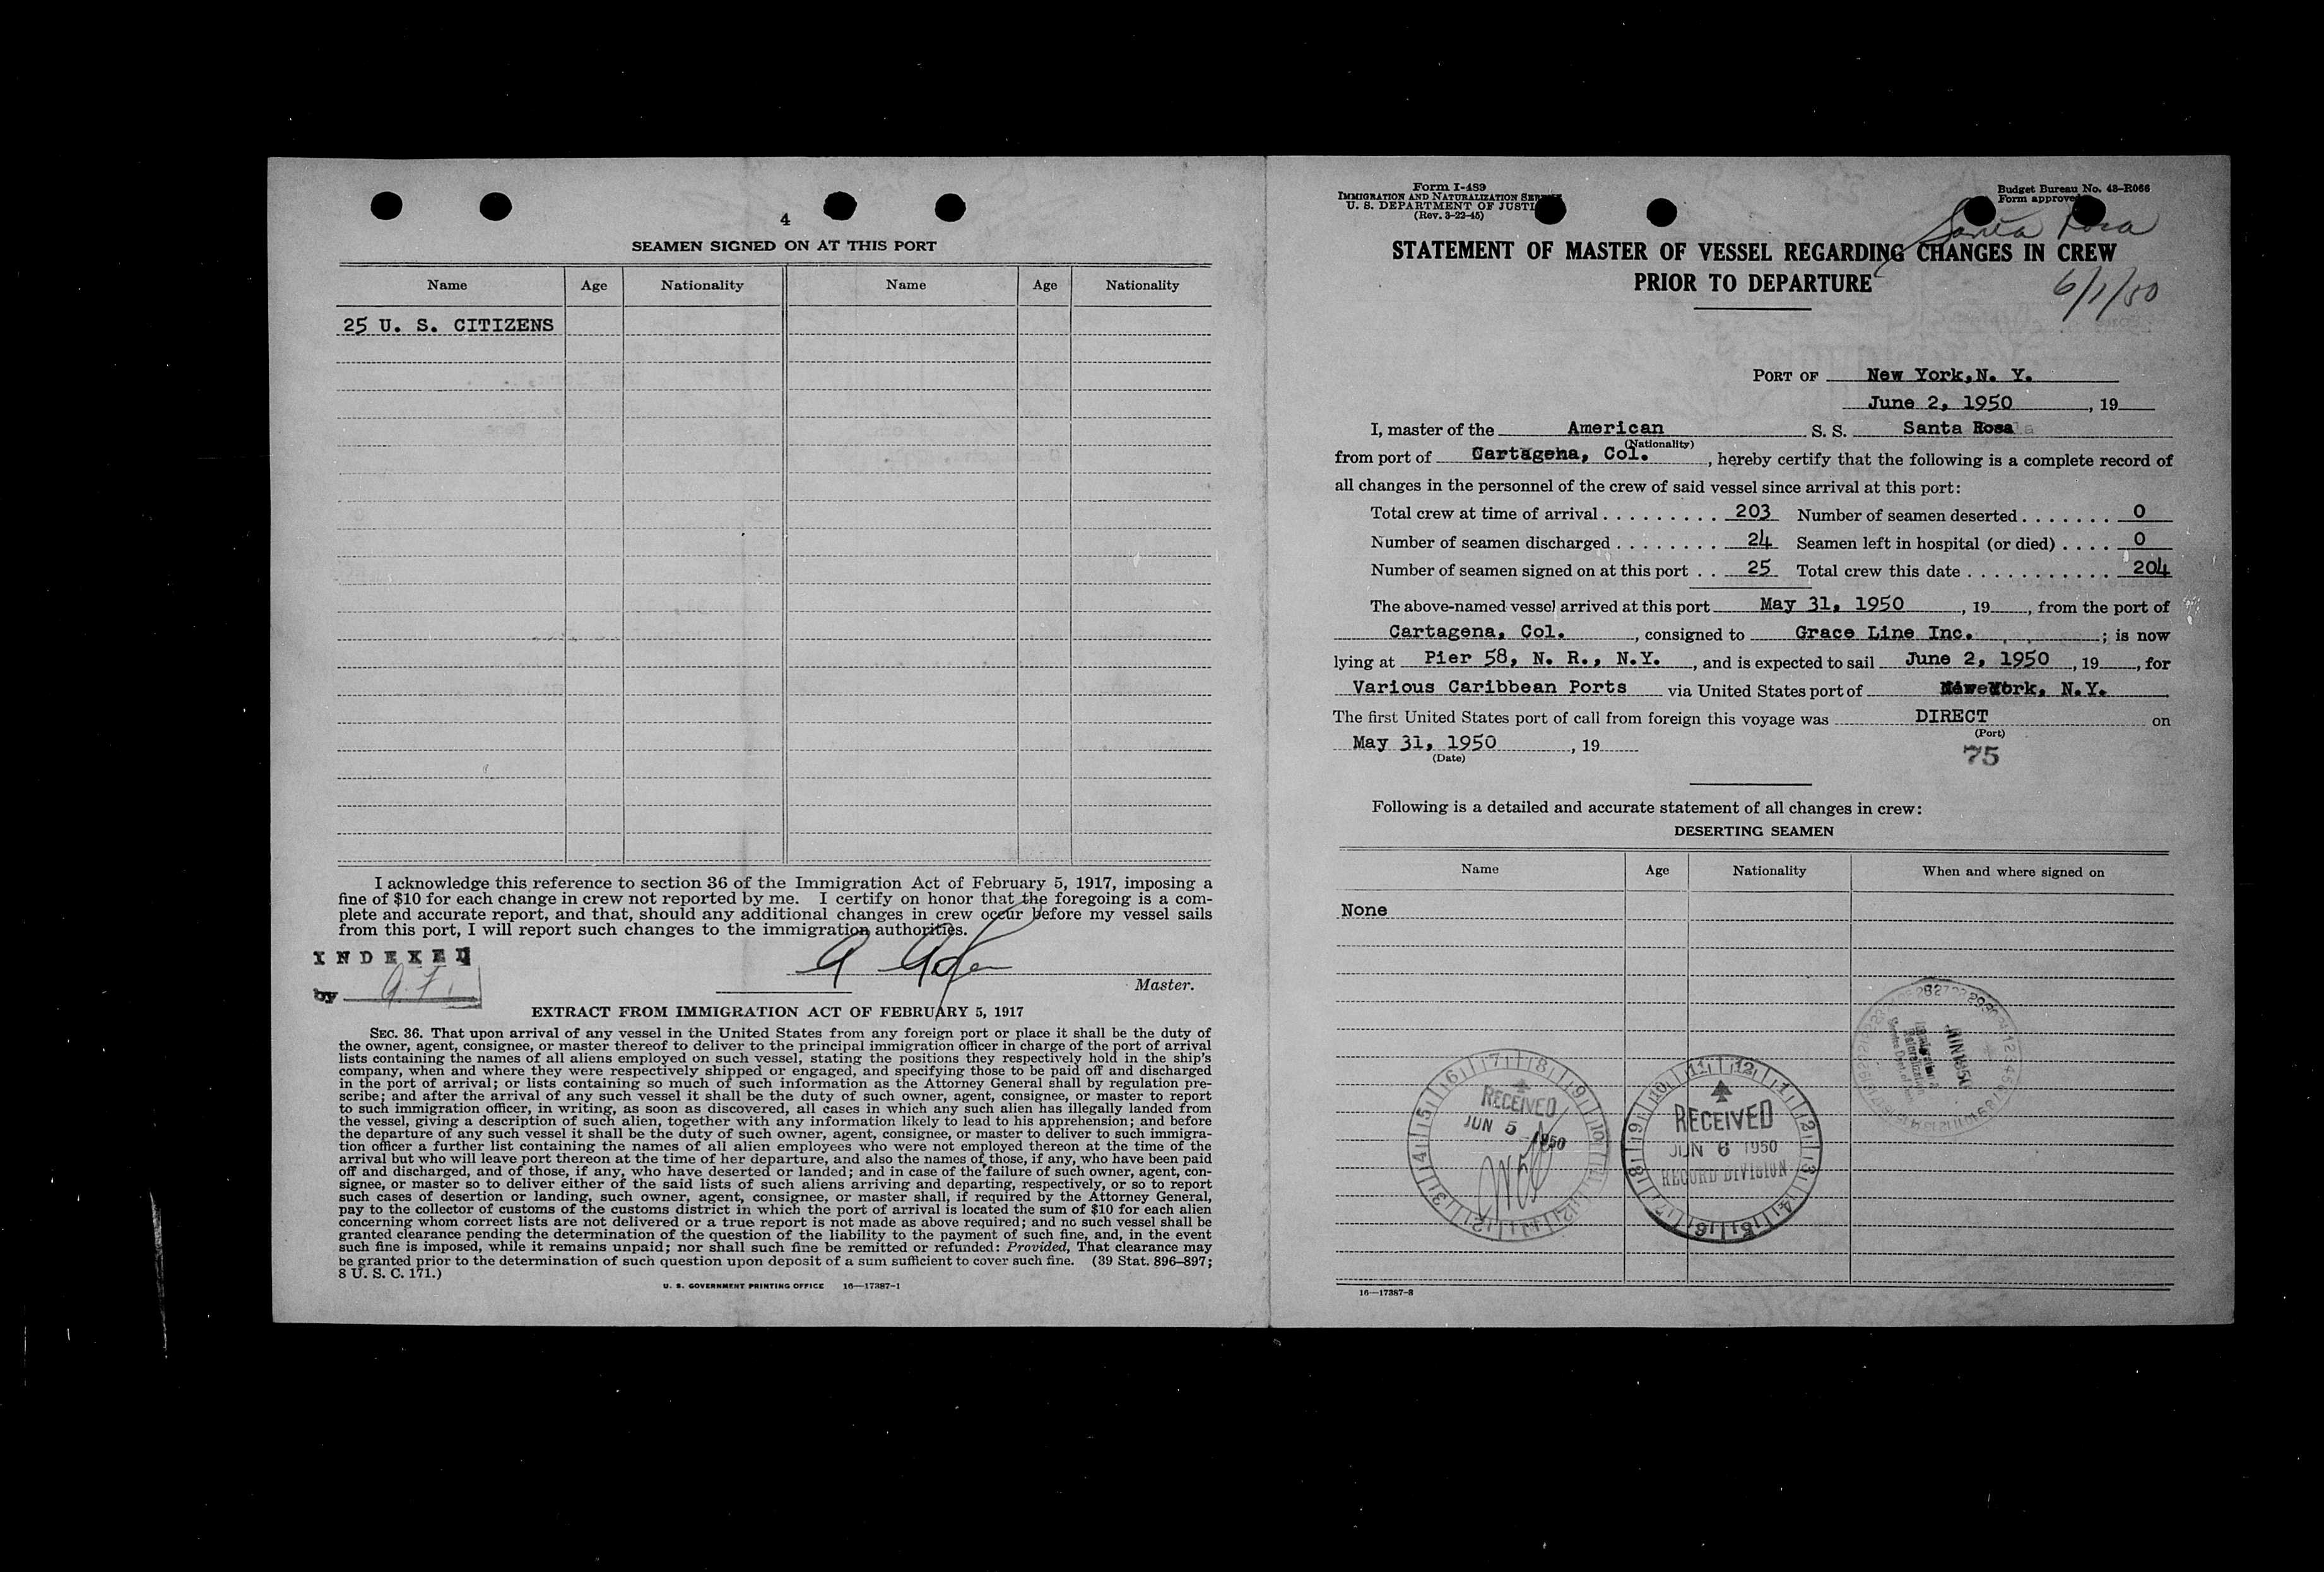 4
SEAMEN SIGNED ON AT THIS PORT
Name Age Nationality Name Age Nationality
25 U. S. CITIZENS
I acknowledge this reference to section 36 of the Immigration Act of February 5, 1917, imposing a
fine of $10 for each change in crew not reported by me. I certify on honor that the foregoing is a com-
plete and accurate report, and that, should any additional changes in crew occur before my vessel sails
from this port, I will report such changes to the immigration authorities.
INDEXED
by
Master.
EXTRACT FROM IMMIGRATION ACT OF FEBRUARY 5, 1917
SEC. 36. That upon arrival of any vessel in the United States from any foreign port or place it shall be the duty of
the owner, agent, consignee, or master thereof to deliver to the principal immigration officer in charge of the port of arrival
lists containing the names of all aliens employed on such vessel, stating the positions they respectively hold in the ship's
company, when and where they were respectively shipped or engaged, and specifying those to be paid off and discharged
in the port of arrival; or lists containing so much of such information as the Attorney General shall by regulation pre-
scribe; and after the arrival of any such vessel it shall be the duty of such owner, agent, consignee, or master to report
to such immigration officer, in writing, as soon as discovered, all cases in which any such alien has illegally landed from
the vessel, giving a description of such alien, together with any information likely to lead to his apprehension; and before
the departure of any such vessel it shall be the duty of such owner, agent, consignee, or master to deliver to such immigra-
tion officer a further list containing the names of all alien employees who were not employed thereon at the time of the
arrival but who will leave port thereon at the time of her departure, and also the names of those, if any, who have been paid
off and discharged, and of those, if any, who have deserted or landed; and in case of the failure of such owner, agent, con-
signee, or master so to deliver either of the said lists of such aliens arriving and departing, respectively, or so to report
such cases of desertion or landing, such owner, agent, consignee, or master shall, if required by the Attorney General,
pay to the collector of customs of the customs district in which the port of arrival is located the sum of $10 for each alien
concerning whom correct lists are not delivered or a true report is not made as above required; and no such vessel shall be
granted clearance pending the determination of the question of the liability to the payment of such fine, and, in the event
such fine is imposed, while it remains unpaid; nor shall such fine be remitted or refunded: Provided, That clearance may
be granted prior to the determination of such question upon deposit of a sum sufficient to cover such fine. (39 Stat. 896–897;
8 U. S. C. 171.)
U. S. GOVERNMENT PRINTING OFFICE 16—17387-1
Form I-489
IMMIGRATION AND NATURALIZATION
U. S. DEPARTMENT OF
(Rev. 3-22-45)
Budget Bureau No. 43–R066
Form approved
Santa Rosa
STATEMENT OF MASTER OF VESSEL REGARDING CHANGES IN CREW
PRIOR TO DEPARTURE
6/1/50
PORT OF New York, N. Y.
June 2, 1950, 19
I, master of the American S. S. Santa Rosa
(Nationality)
from port of Cartagena, Col., hereby certify that the following is a complete record of
all changes in the personnel of the crew of said vessel since arrival at this port:
Total crew at time of arrival 203 Number of seamen deserted 0
Number of seamen discharged 24 Seamen left in hospital (or died) 0
Number of seamen signed on at this port 25 Total crew this date 204
The above-named vessel arrived at this port May 31, 1950, 19, from the port of
Cartagena, Col., consigned to Grace Line Inc.; is now
lying at Pier 58, N. R., N.Y., and is expected to sail June 2, 1950, 19, for
Various Caribbean Ports via United States port of New York, N.Y.
The first United States port of call from foreign this voyage was DIRECT on
(Port)
May 31, 1950, 19
(Date)
75
Following is a detailed and accurate statement of all changes in crew:
DESERTING SEAMEN
Name Age Nationality When and where signed on
None
RECEIVED
JUN 5 1950
RECEIVED
JUN 6 1950
RECORD DIVISION
16—17387-3